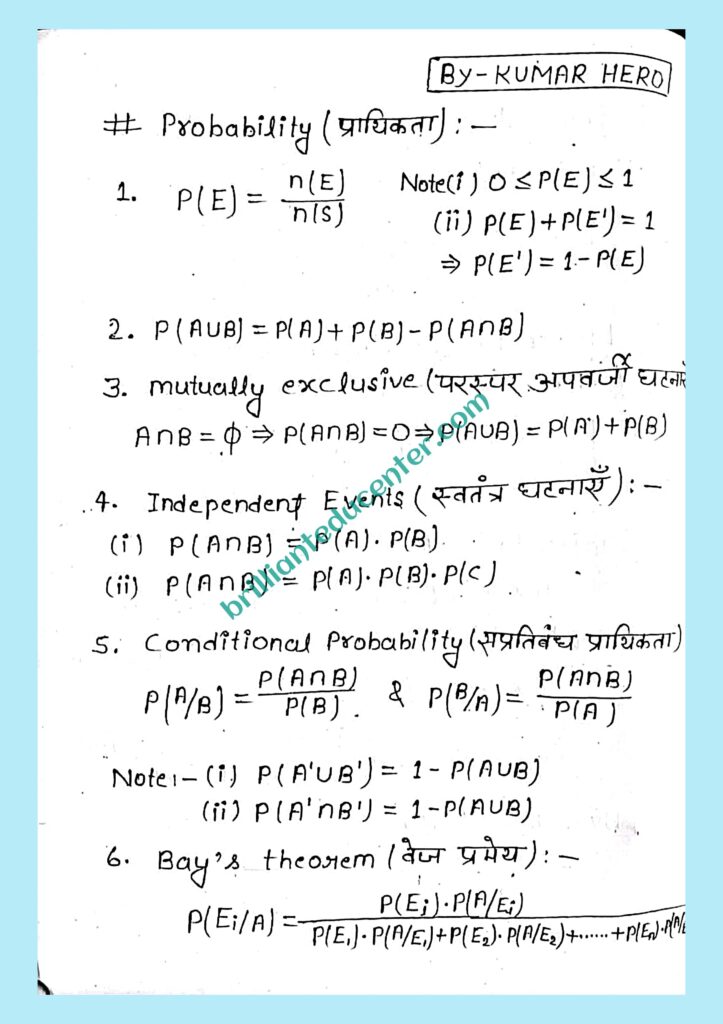 BY-KUMAR HERO
# Probability (प्रायिकता) : —
1. P(E) = n(E)/n(S) Note(i) 0 ≤ P(E) ≤ 1
(ii) P(E)+P(E')=1
⇒ P(E')=1-P(E)
2. P(A∪B) = P(A)+P(B)-P(A∩B)
3. mutually exclusive (परस्पर अपवर्जी घटनाएँ
A∩B = ϕ ⇒ P(A∩B)=0⇒P(A∪B)=P(A)+P(B)
4. Independent Events (स्वतंत्र घटनाएँ) : —
(i) P(A∩B) = P(A)·P(B).
(ii) P(A∩B) = P(A)·P(B)·P(C)
5. Conditional Probability (सप्रतिबंध प्रायिकता)
P(A/B) = P(A∩B)/P(B) & P(B/A) = P(A∩B)/P(A)
Note:– (i) P(A'∪B') = 1 - P(A∪B)
(ii) P(A'∩B') = 1-P(A∪B)
6. Bay's theorem (वेज प्रमेय) : —
P(Ei/A) = P(Ei)·P(A/Ei)/P(E₁)·P(A/E₁)+P(E₂)·P(A/E₂)+......+P(En)·P(A/E
brillianteducenter.com